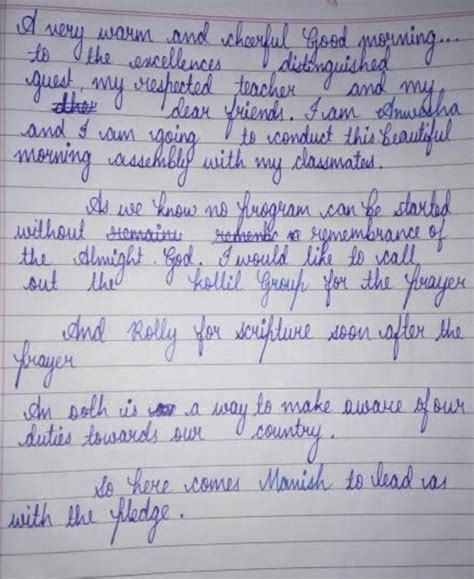 A very warm and cheerful Good morning...
to the excellences distinguished
guest my respected teacher and my
dear friends. I am Anwesha
and I am going to conduct this beautiful
morning assembly with my classmates.
As we know no program can be started
without remembrance of
the Almight. God. I would like to call
out the Group for the prayer
And Rolly for scripture soon after the
prayer
An ooth is a way to make aware of our
duties towards our country.
So here comes Manish to lead us
with the pledge.